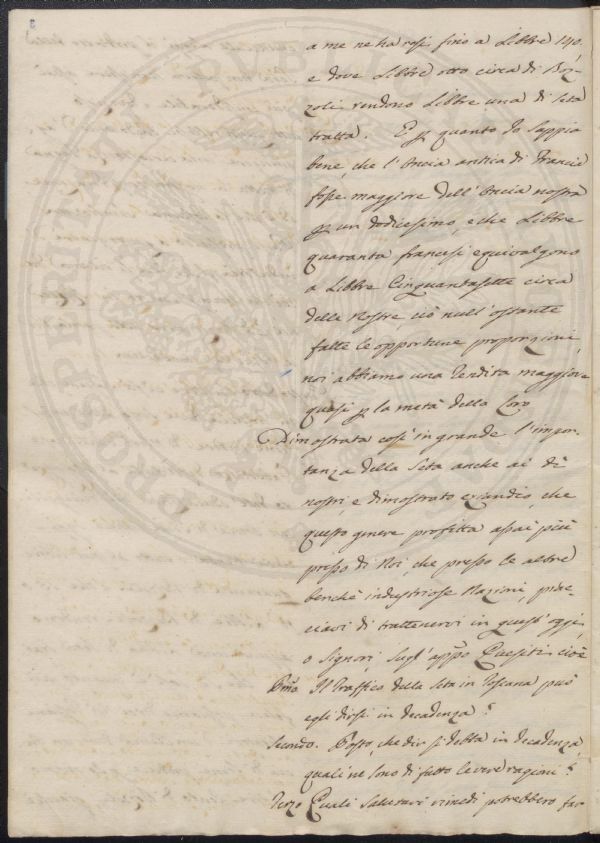 a me ne ha resi fino a Libbre 140,
e dove Libbre otto circa di Boz-
zoli rendono Libbre una di seta
tratta. E p quanto Io sappia
bene, che l'Oncia antica di Francia
fosse maggiore dell'Oncia nostra
p un dodicesimo, e che Libbre
quaranta francesi equivalgono
a Libbre Cinquantasette circa
delle Nostre, ciò null'ostante
fatte le opportune proporzioni,
noi abbiamo una Rendita maggiore
quasi p la metà della Loro
Dimostrata così in grande l'impor-
tanza della Seta anche ai dì
nostri, e dimostrato eziandio, che
questo genere profitta assai più
presso di Noi, che presso le altre
benchè industriose Nazioni, piac-
ciavi di trattenervi in quest'oggi,
o Signori, sugl'appo Quesiti cioè
Pmo Il Traffico della Seta in Toscana può
egli dirsi in decadenza?
Secondo. Posto, che dir si debba in decadenza,
quali ne sono di fatto le vere ragioni?
Terzo Quali salutari rimedi potrebbero far